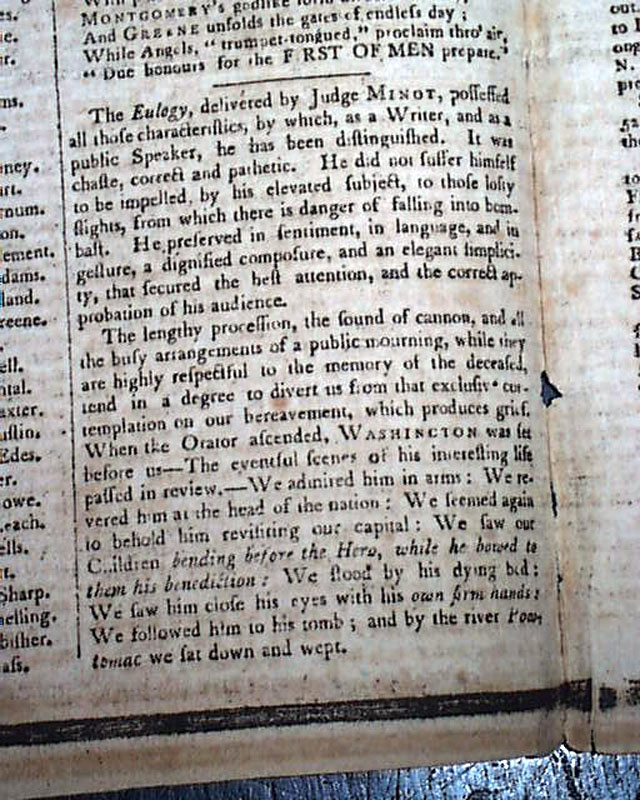 es.
ne.
er.
ms.
ney.
art.
rnum.
on.
ement.
dams.
land.
reene.
ell.
ntal.
axter.
uſtin.
Edes.
er.
owe.
each.
ells.
rt.
Sharp.
nelling.
biſher.
aſs.
MONTGOMERY's godlike form
And GREENE unfolds the gates of endleſs day ;
While Angels, " trumpet-tongued," proclaim thro' air,
" Due honours for the F RST OF MEN prepare."
The Eulogy, delivered by Judge MINOT, poſſeſſed
all thoſe characteriſtics, by which, as a Writer, and as a
public Speaker, he has been diſtinguiſhed. It was
chaſte, correct and pathetic. He did not ſuffer himſelf
to be impelled, by his elevated ſubject, to thoſe lofty
flights, from which there is danger of falling into bom-
baſt. He preſerved in ſentiment, in language, and in
geſture, a dignified compoſure, and an elegant ſimplici-
ty, that ſecured the beſt attention, and the correct ap-
probation of his audience.
The lengthy proceſſion, the ſound of cannon, and all
the buſy arrangements of a public mourning, while they
are highly reſpectful to the memory of the deceaſed,
tend in a degree to divert us from that excluſive con-
templation on our bereavement, which produces grief.
When the Orator aſcended, WASHINGTON was ſet
before us—The eventful ſcenes of his intereſting life
paſſed in review.—We admired him in arms : We re-
vered him at the head of the nation : We ſeemed again
to behold him reviſiting our capital : We ſaw our
C..ildren bending before the Hero, while he bowed to
them his benediction : We ſtood by his dying bed :
We ſaw him cloſe his eyes with his own firm hands :
We followed him to his tomb ; and by the river Pow-
tomac we ſat down and wept.
out-
to
N.